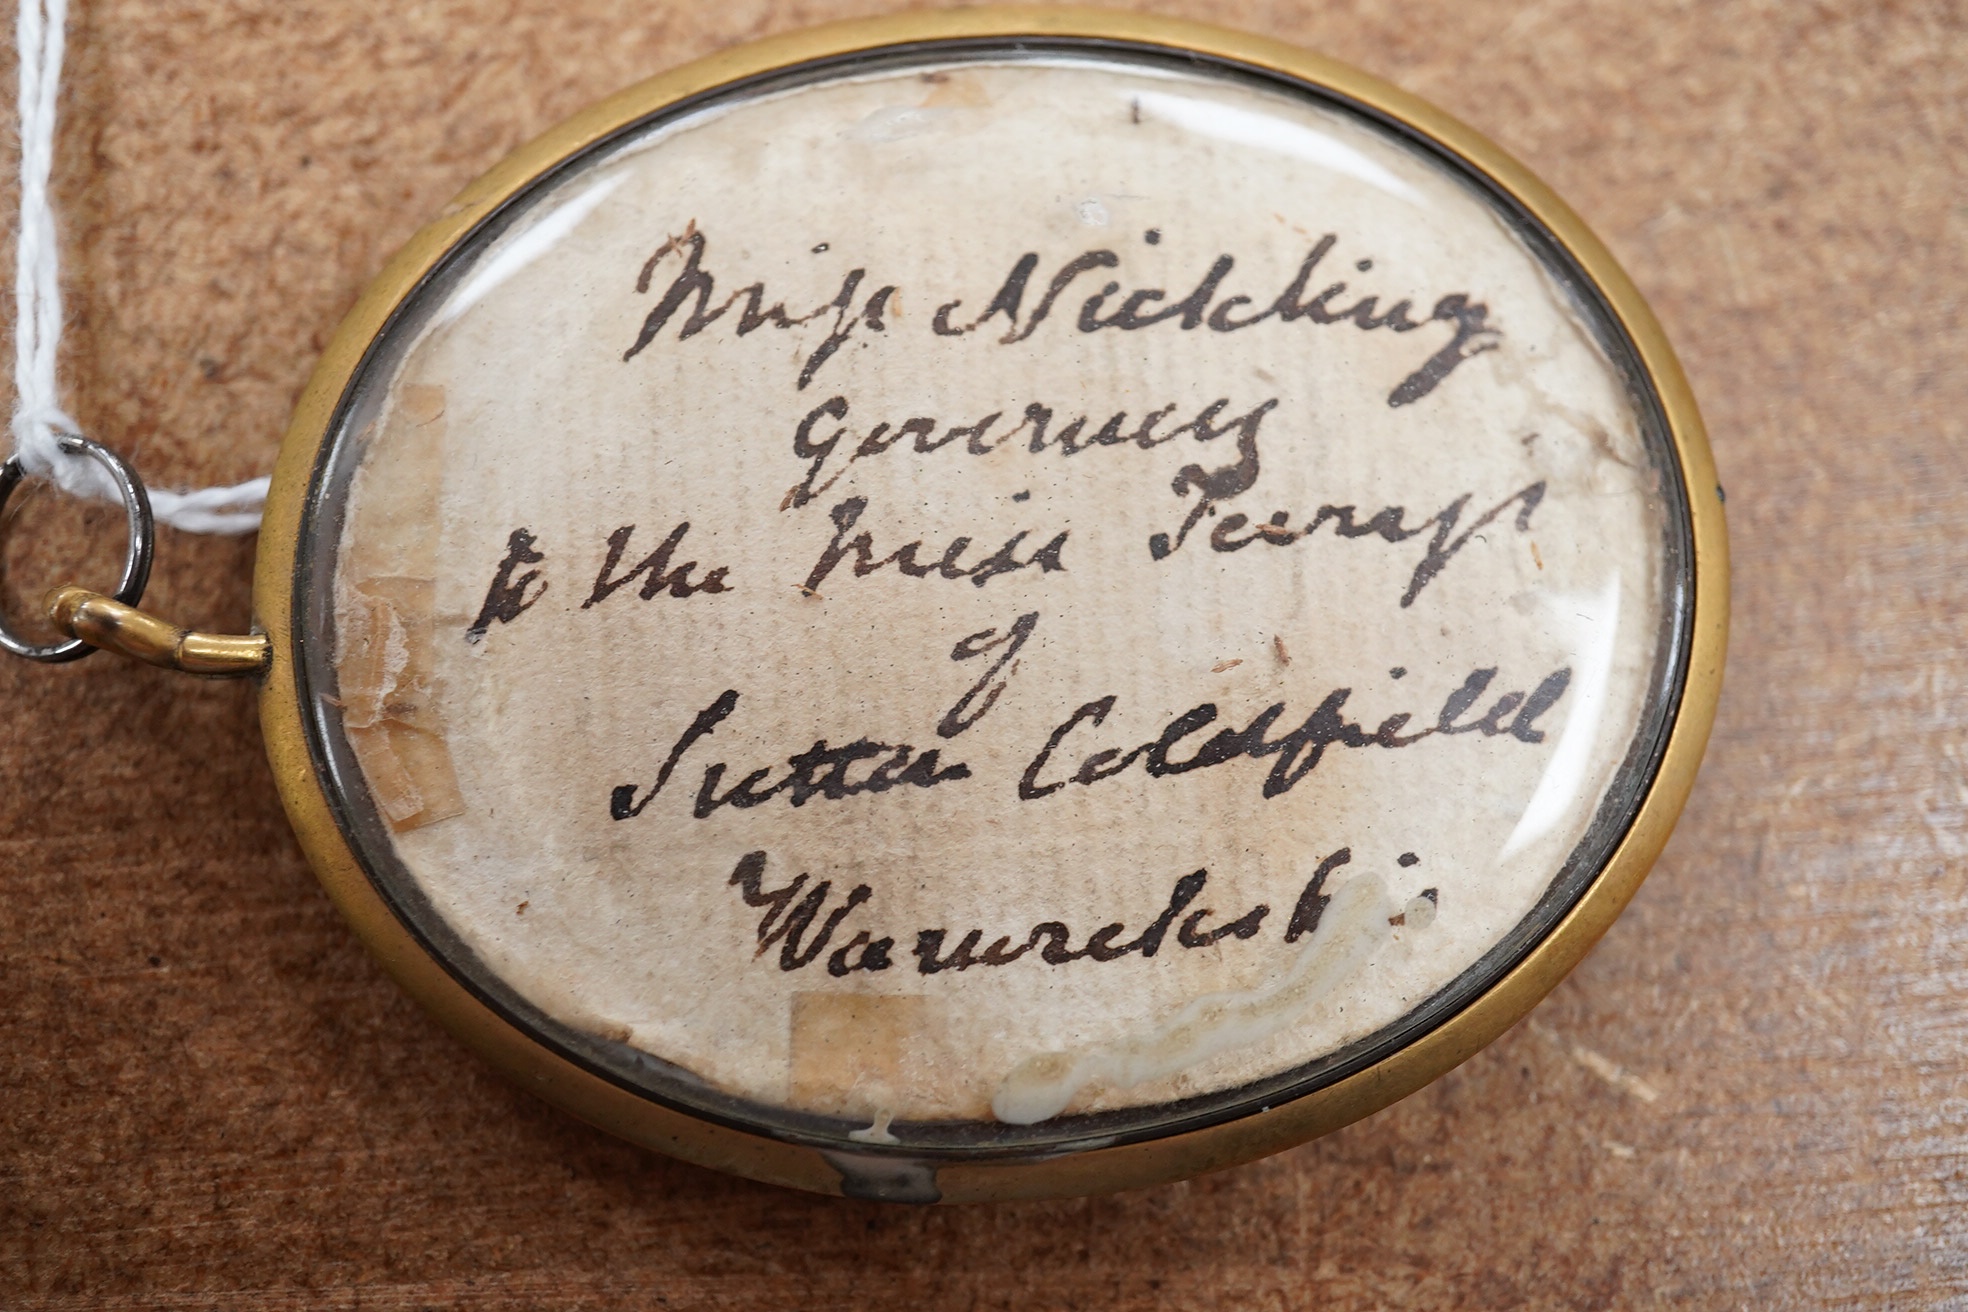 Miss Nickling
Governess
to the Miss
of
Sutton Coldfield
Warwickshi